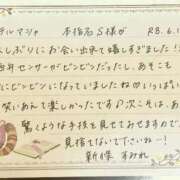 デルマシャ 本指名S様が R8.6.1
久しぶりにお会い出来て嬉しすぎました!!
毎年センサーがビンビンだったし、あそこも
にビンビンになっていましたね♡いっぱい
笑いあえて楽しかったです♡次こそは、あ
驚くような手技を見せてみせますので、
見捨てないで下さいねー!
新條 すみれ